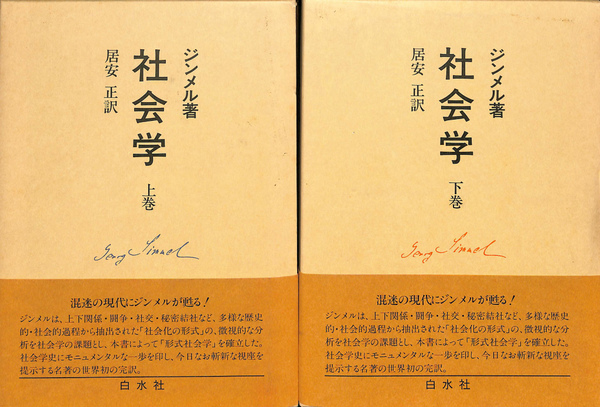 ジンメル著
社会学
居安 正訳
上巻
Georg Simmel
混迷の現代にジンメルが甦る!
ジンメルは、上下関係・闘争・社交・秘密結社など、多様な歴史
的・社会的過程から抽出された「社会化の形式」の、微視的な分
析を社会学の課題とし、本書によって「形式社会学」を確立した。
社会学史にモニュメンタルな一歩を印し、今日なお斬新な視座を
提示する名著の世界初の完訳。
白水社
ジンメル著
社会学
居安 正訳
下巻
Georg Simmel
混迷の現代にジンメルが甦る!
ジンメルは、上下関係・闘争・社交・秘密結社など、多様な歴史
的・社会的過程から抽出された「社会化の形式」の、微視的な分
析を社会学の課題とし、本書によって「形式社会学」を確立した。
社会学史にモニュメンタルな一歩を印し、今日なお斬新な視座を
提示する名著の世界初の完訳。
白水社